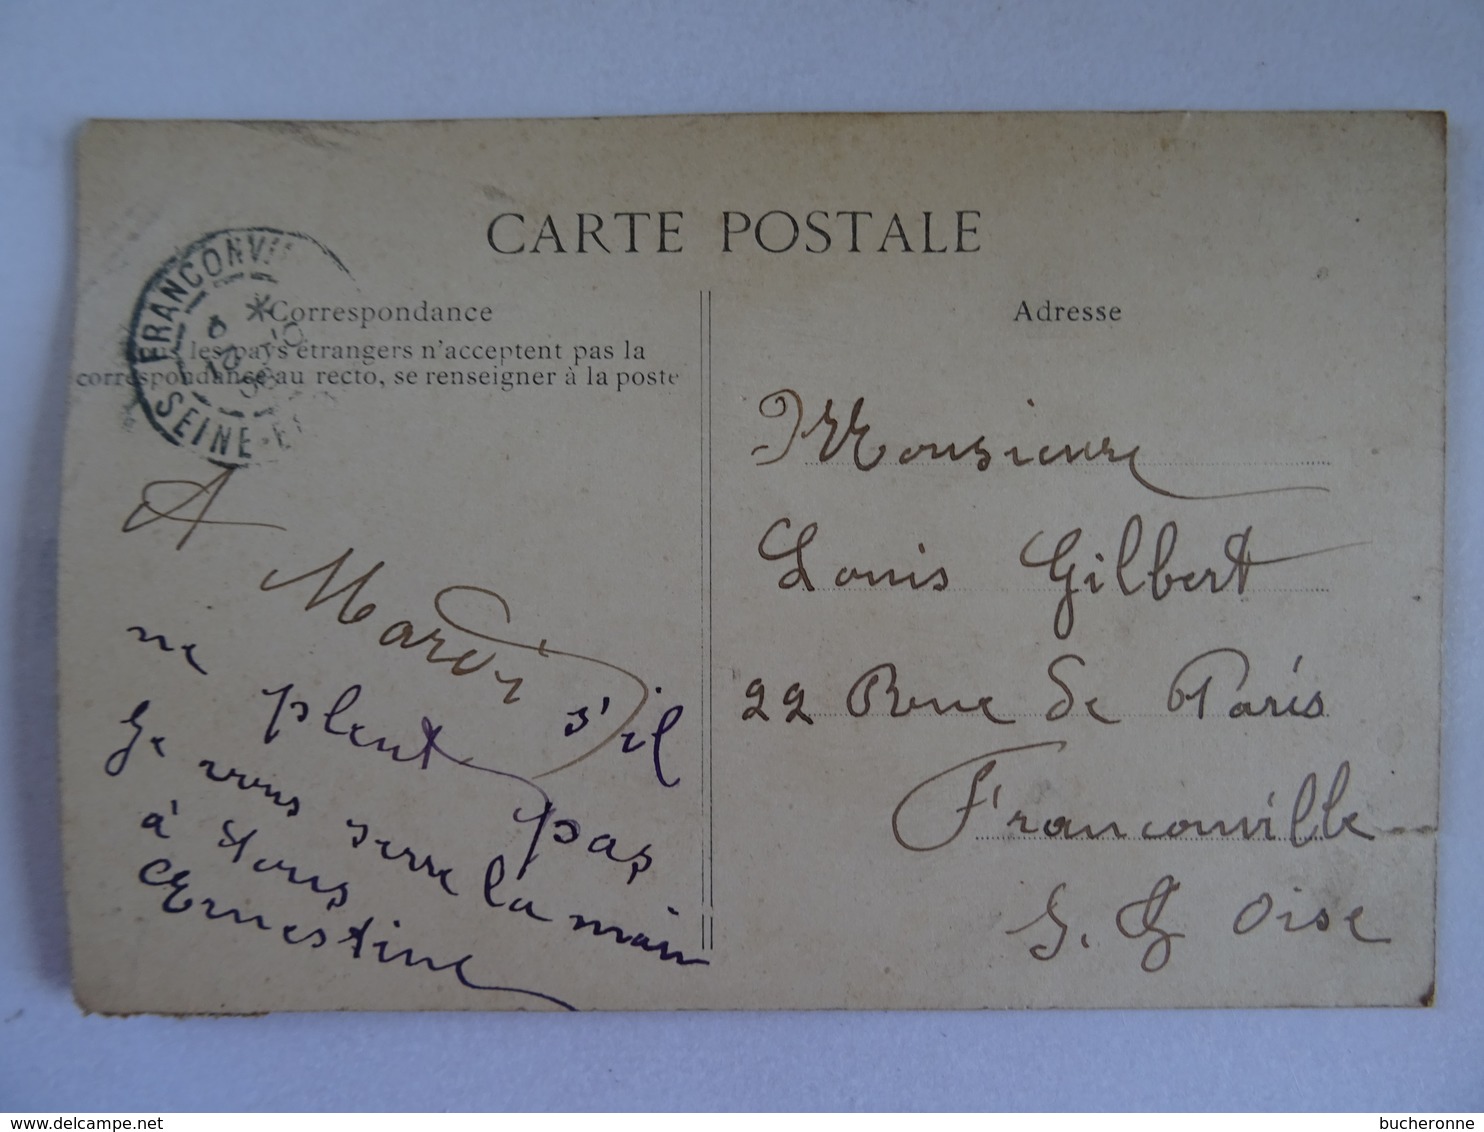 CARTE POSTALE
*Correspondance
les pays étrangers n'acceptent pas la
correspondance au recto, se renseigner à la poste
FRANCONVI
SEINE-E
A
Mardi s'il
ne pleut pas
Je vous serre la main
à tous
Ernestine
Adresse
Monsieur
Louis Gilbert
22 Rue de Paris
Franconville
S. & Oise
bucheronne